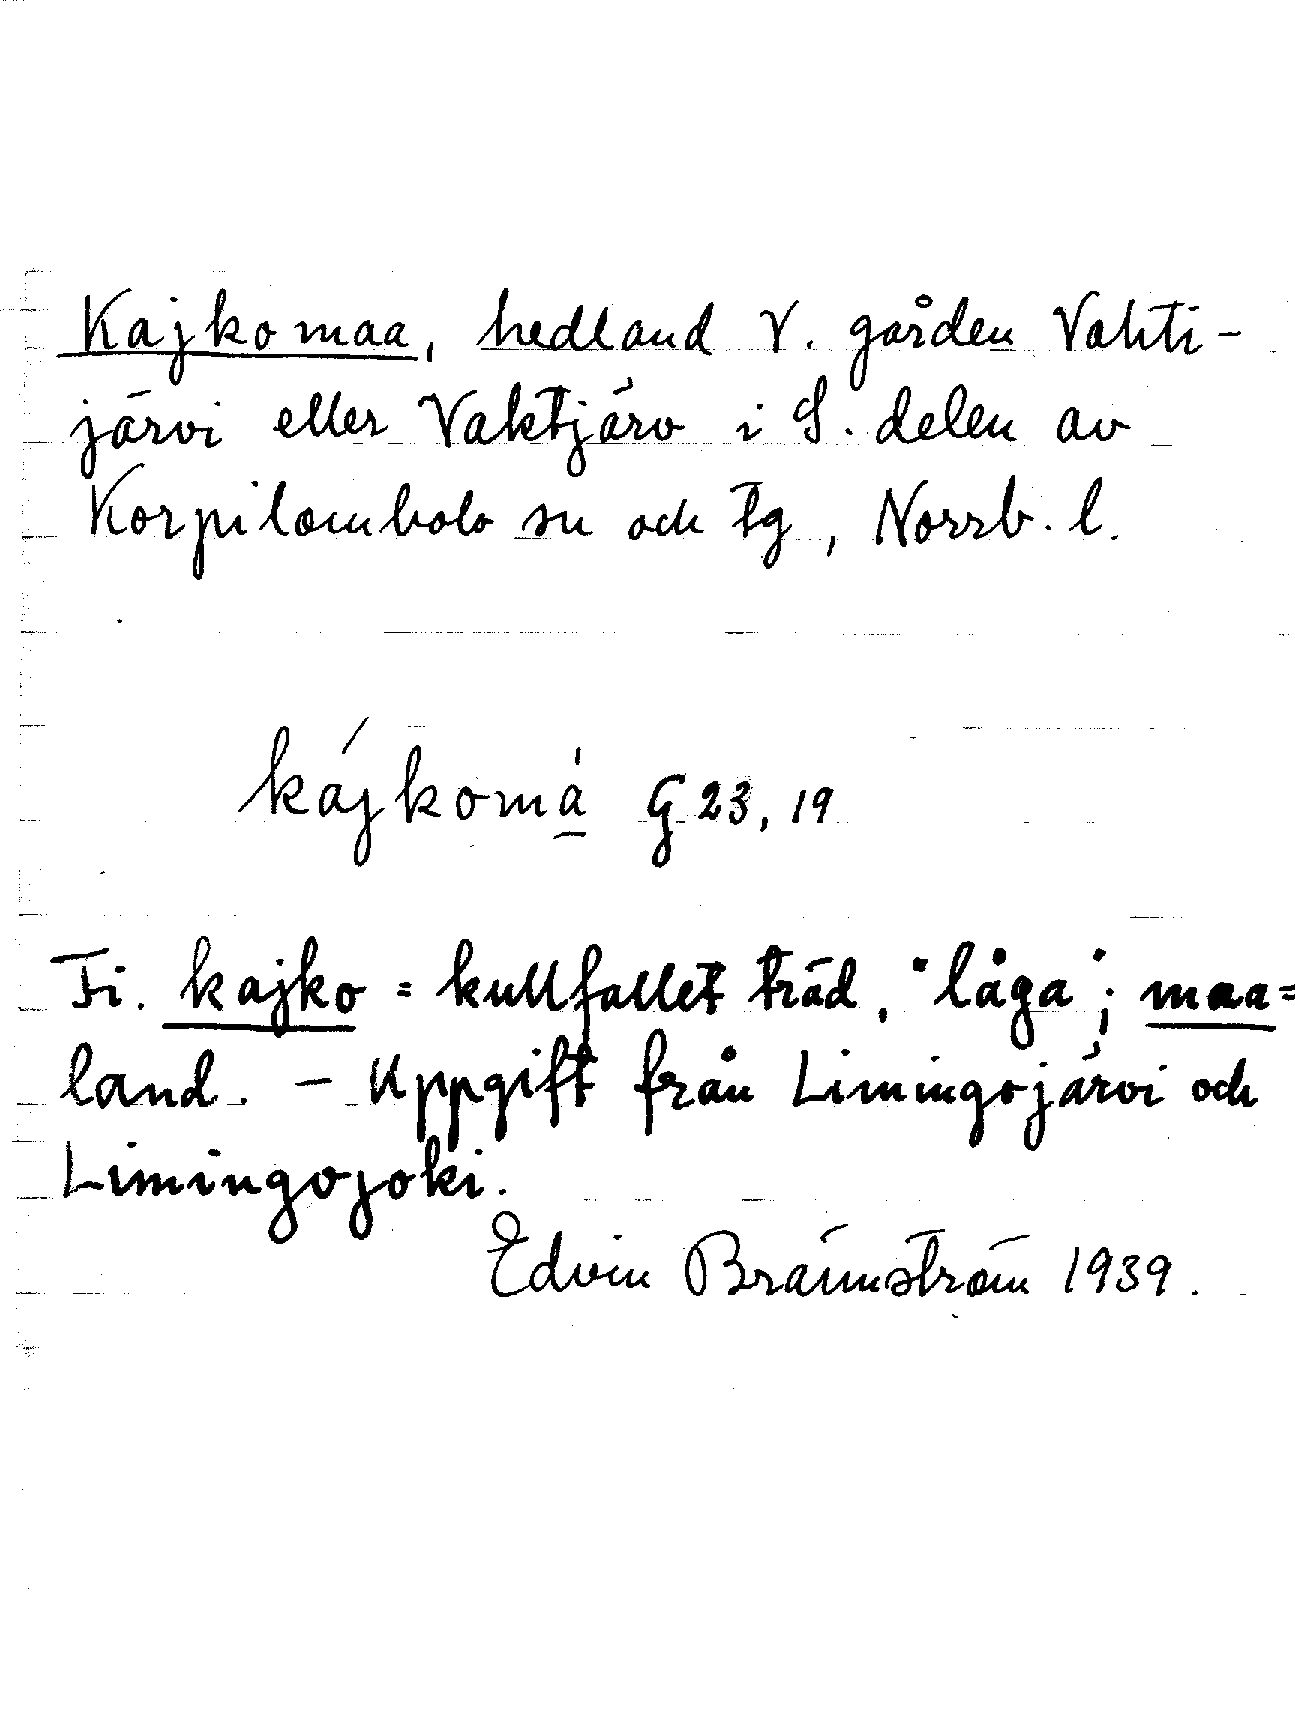 Kajkomaa, hedland V. gården Vahti-
järvi eller Vaktjärv i S. delen av
Korpilombolo sn och tg, Norrb. l.
kájkomà̱ G 23, 19
Fi. kajko = kullfallet träd, "låga"; maa =
land. - Uppgift från Limingojärvi och
Limingojoki.
Edvin Brännström 1939.